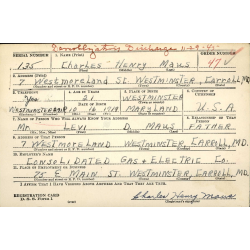 SERIAL NUMBER 1. NAME (Print) ORDER NUMBER
135 CHARLES HENRY MAUS 47V
2. ADDRESS (Print)
7 WESTMORELAND ST. WESTMINSTER, CARROLL, MD.
3. TELEPHONE 4. AGE IN YEARS 5. PLACE OF BIRTH 6. COUNTRY OF CITIZENSHIP
21 WESTMINSTER
DATE OF BIRTH
WESTMINSTER 16 1919 MARYLAND U.S.A.
7. NAME OF PERSON WHO WILL ALWAYS KNOW YOUR ADDRESS 8. RELATIONSHIP OF THAT PERSON
MR. LEVI D. MAUS FATHER
9. ADDRESS OF THAT PERSON
7 WESTMORELAND WESTMINSTER, CARROLL, MD.
10. EMPLOYER'S NAME
CONSOLIDATED GAS & ELECTRIC CO.
11. PLACE OF EMPLOYMENT OR BUSINESS
75 E. MAIN ST. WESTMINSTER, CARROLL, MD.
I AFFIRM THAT I HAVE VERIFIED ABOVE ANSWERS AND THAT THEY ARE TRUE.
REGISTRATION CARD
D. S. S. Form 1
Charles Henry Maus